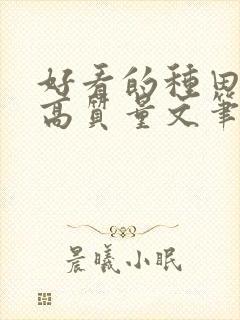 好看的種田
高質量文筆
晨曦小眠